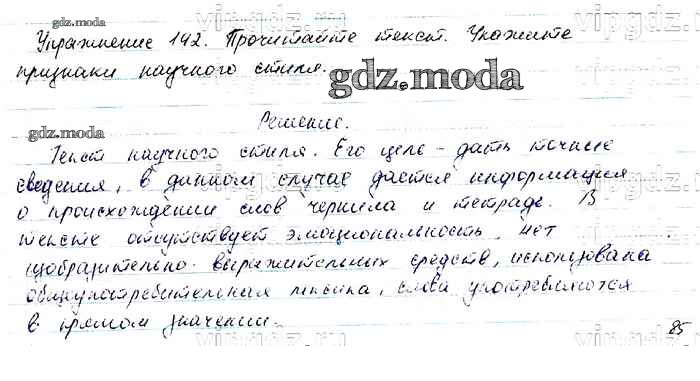 vipgdz.ru vipgdz.ru
gdz.moda
Упражнение 142. Прочитайте текст. Укажите
признаки научного стиля.
gdz.moda
Решение.
gdz.moda
Текст научного стиля. Его цель - дать точные
сведения, в данном случае дается информация
о происхождении слов чернила и тетрадь. В
тексте отсутствует эмоциональность, нет
изобразительно-выразительных средств, использована
общеупотребительная лексика, слова употребляются
в прямом значении.
85